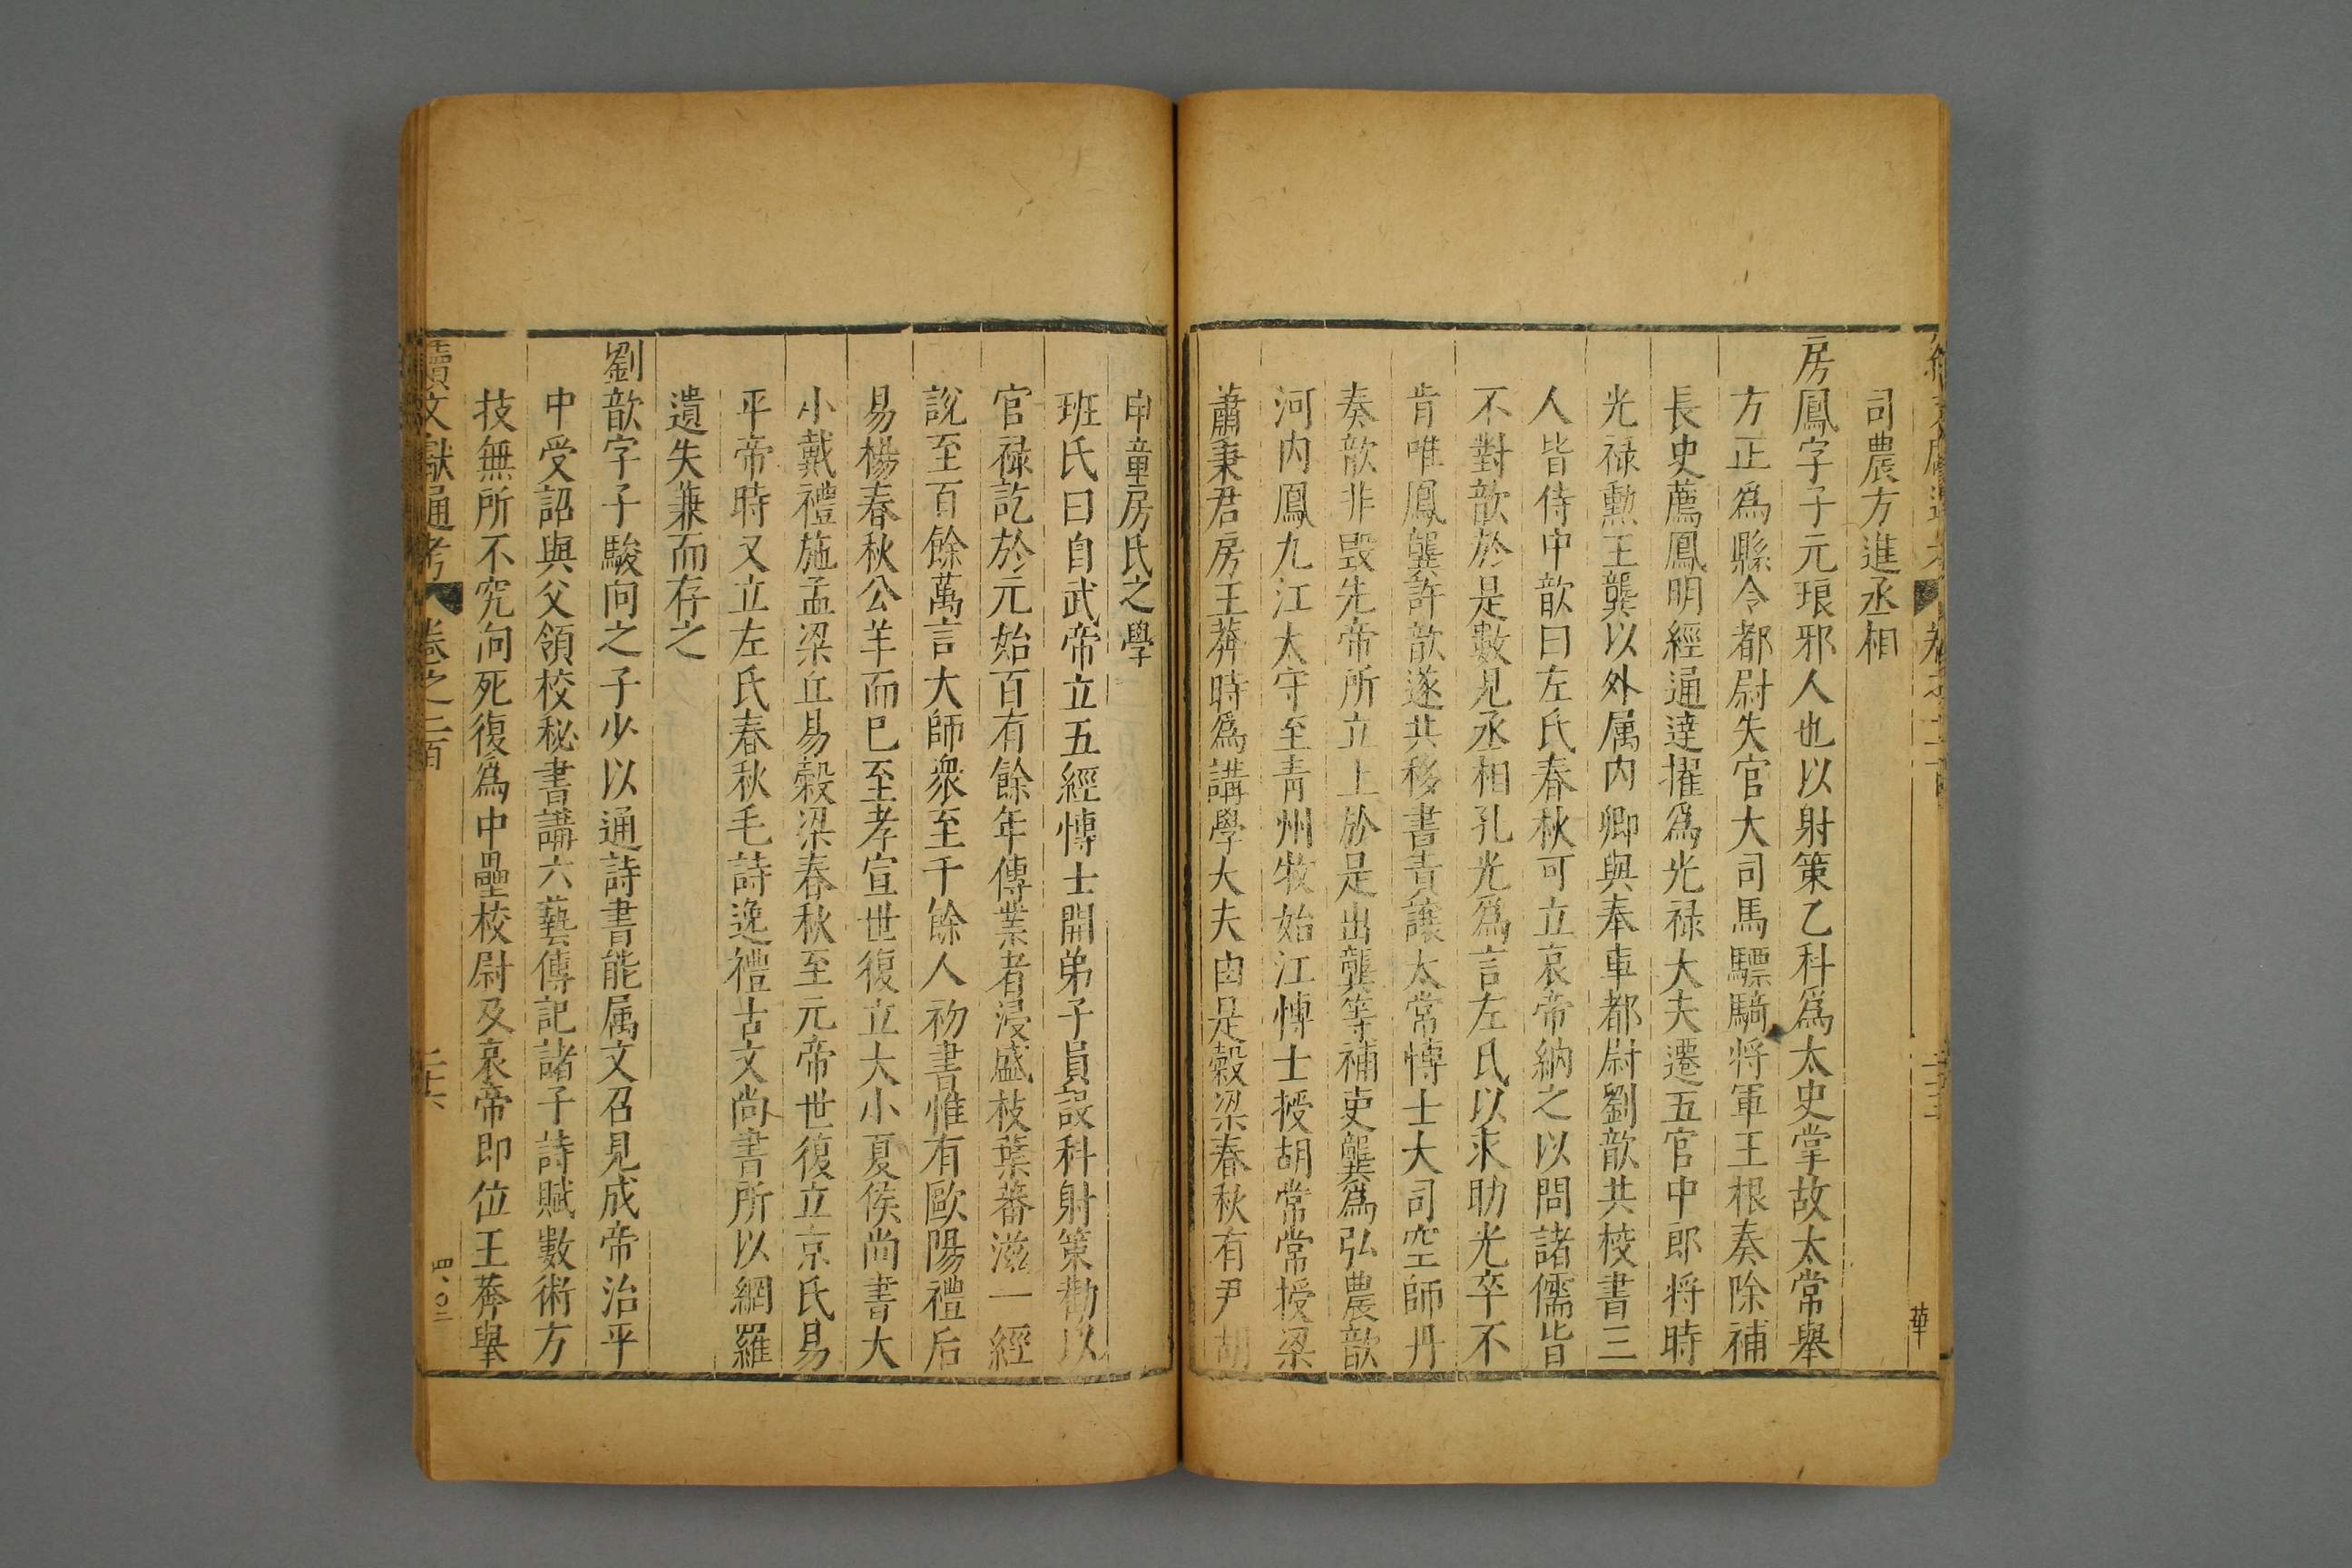 司農方進丞相
房鳳字子元琅邪人也以射策乙科爲太史掌故太常舉
方正爲縣令都尉失官大司馬驃騎將軍王根奏除補
長史薦鳳明經通達擢爲光祿大夫遷五官中郎將時
光祿勲王龔以外属内卿與奉車都尉劉歆共校書三
人皆侍中歆曰左氏春秋可立哀帝納之以問諸儒皆
不對歆於是數見丞相孔光爲言左氏以求助光卒不
肯唯鳳龔許歆遂共移書責讓太常博士大司空師丹
奏歆非毀先帝所立上於是出龔等補吏龔爲弘農歆
河内鳳九江太守至青州牧始江博士授胡常常授梁
蕭秉君房王莽時爲講學大夫由是穀梁春秋有尹胡
申童房氏之學
班氏曰自武帝立五經博士開弟子員設科射策勸以
官禄訖於元始百有餘年傳業者浸盛枝葉蕃滋一經
說至百餘萬言大師衆至千餘人初書惟有歐陽禮后
易楊春秋公羊而已至孝宣世復立大小夏侯尚書大
小戴禮施孟梁丘易穀梁春秋至元帝世復立京氏易
平帝時又立左氏春秋毛詩逸禮古文尚書所以網羅
遺失兼而存之
劉歆字子駿向之子少以通詩書能属文召見成帝治平
中受詔與父領校秘書講六藝傳記諸子詩賦數術方
技無所不究向死復爲中壘校尉及哀帝即位王莽舉
續文獻通考 卷之二百
華